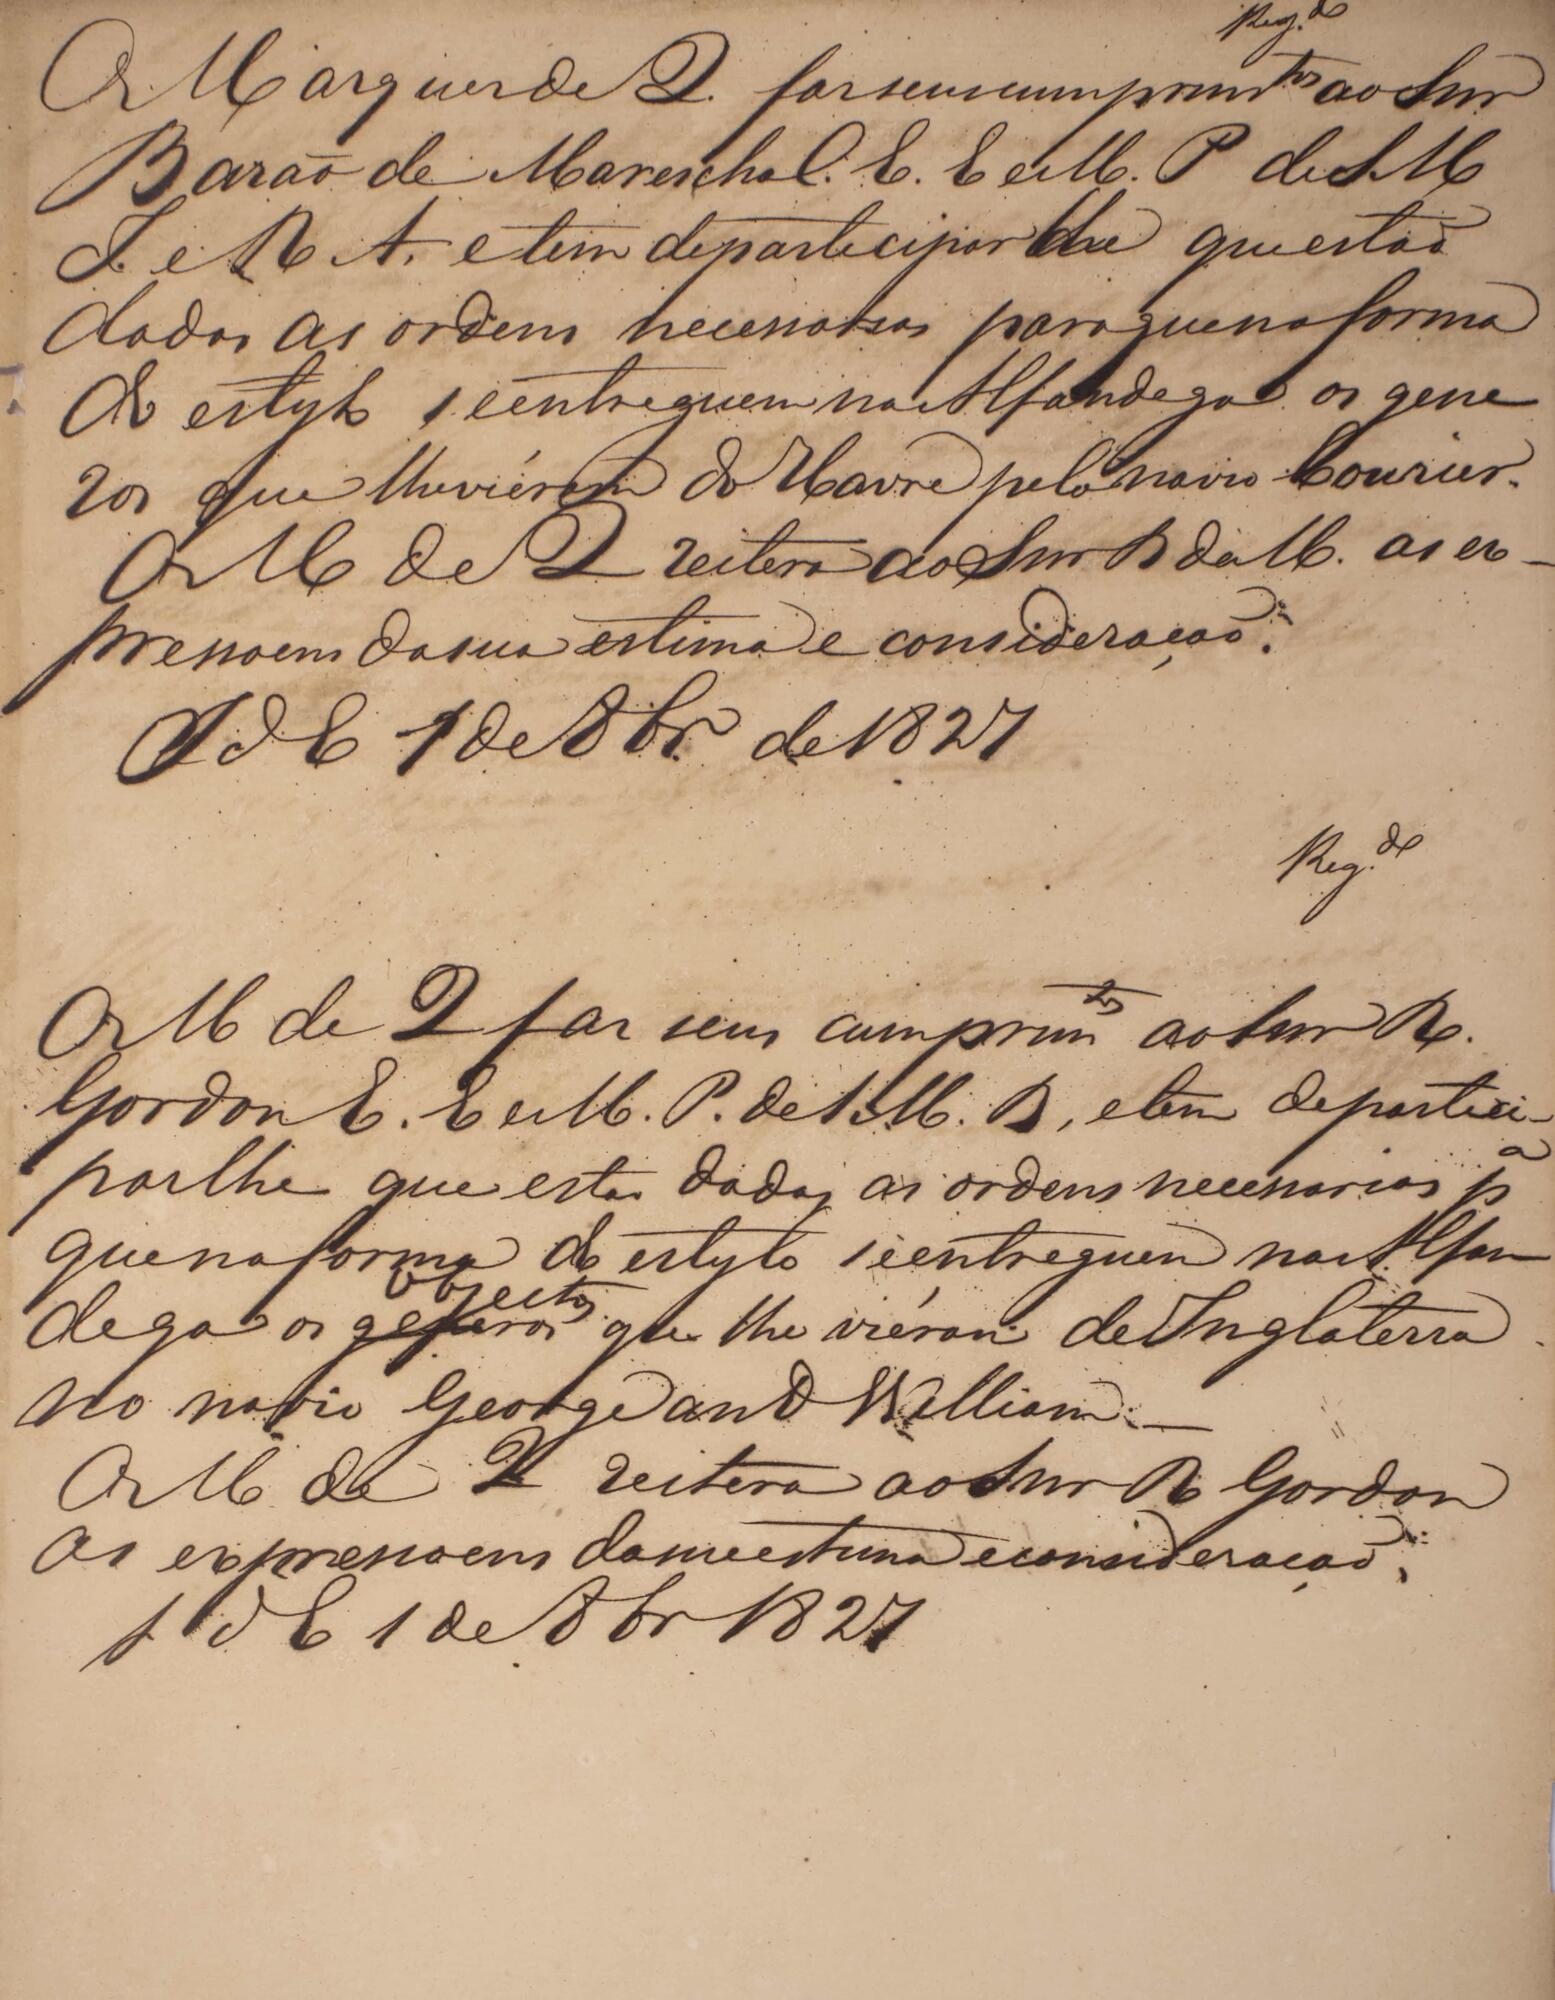 Reg.do
O Marquez de Q. faz seus cumprimtos ao Snr
Barão de Mareschal. E. E e M. P de S M
I. e R A. e tem de participar lhe que estaõ
dadas as ordens necessarias para que na forma
do estylo se entreguem na Alfandega os gene
ros que lhe viérem do Havre pelo navio Courier.
O M de Q reitera ao Snr B de M. as ex-
pressoens da sua estima e consideraçaõ.
S d E 1 de 8br. de 1827
Reg.do
O M de Q faz seus cumprimtos ao Snr R.
Gordon E. E e M. P. de S. M. B, e tem de partici-
par lhe que estaõ dadas as ordens necessarias pa
que na forma do estylo se entreguem na Alfan
dega os generos objectos que lhe viéram de Inglaterra
no navio George and William. —
O M de Q reitera ao Snr R Gordon
as expressoens da sua estima e consideraçaõ.
S d E 1 de 8br 1827